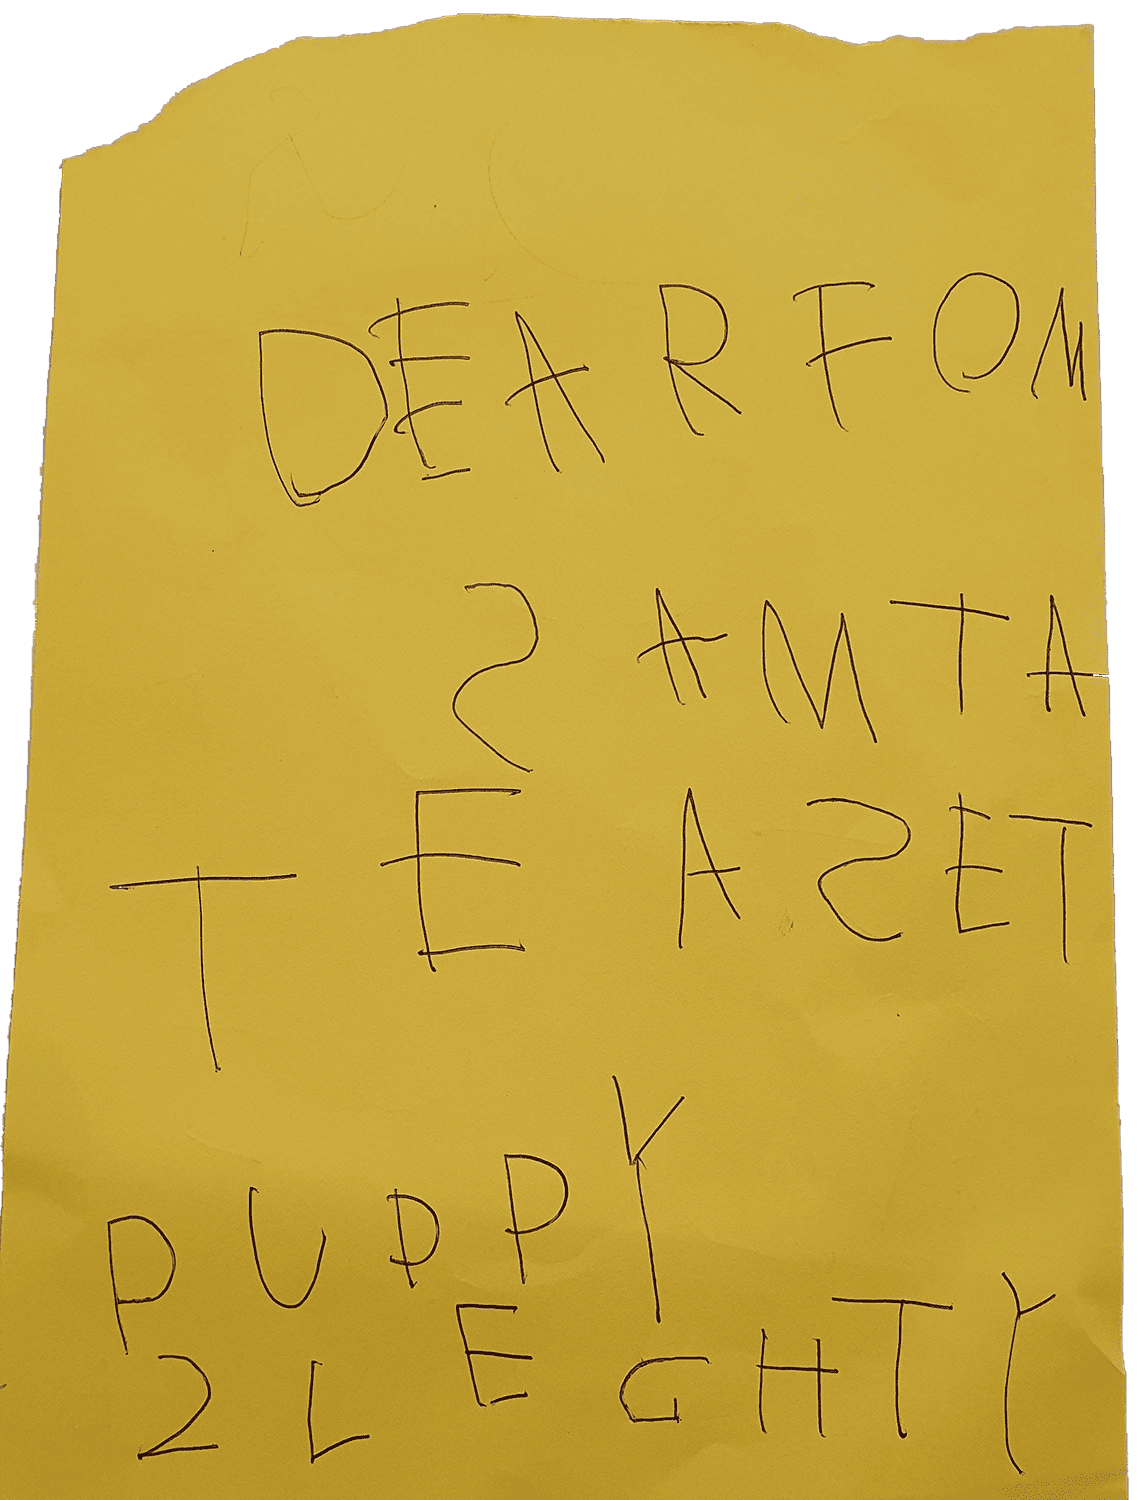 DEAR FOM
SAMTA
TE ASET
PUPPY
2LEGHTY